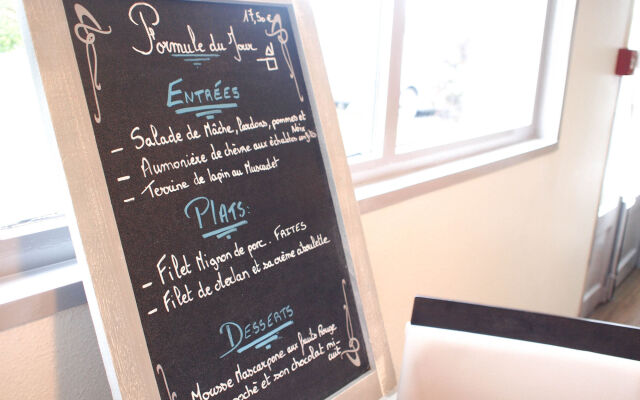 17,50€
Formule du Jour
ENTRÉES
- Salade de Mâche, Lardons, pommes et
Noix
- Aumonière de chèvre aux échalotes confites
- Terrine de lapin au Muscadet
PLATS:
- Filet Mignon de porc. FRITES
- Filet de merlan et sa crème ciboulette
DESSERTS
Mousse Mascarpone aux fruits Rouge
poché et son chocolat mi
cuit